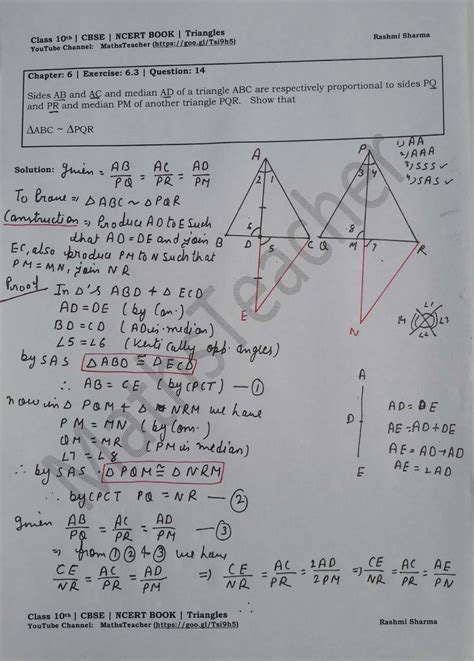 Class 10th | CBSE | NCERT BOOK | Triangles
YouTube Channel: MathsTeacher (https://goo.gl/Tsi9h5)
Rashmi Sharma
Chapter: 6 | Exercise: 6.3 | Question: 14
Sides AB and AC and median AD of a triangle ABC are respectively proportional to sides PQ
and PR and median PM of another triangle PQR. Show that
ΔABC ~ ΔPQR
Solution: Given = AB/PQ = AC/PR = AD/PM
To Prove => ΔABC ~ ΔPQR
Construction => Produce AD to E such
that AD = DE and join
EC, also produce PM to N such that
PM = MN, join NR
A
2 1
B
6
D
5
C
E
P
3 4
Q
8
M
7
R
N
1) AA
2) AAA
3) SSS ✓
4) SAS ✓
Proof In Δ'S ABD & ECD
AD = DE (by Con.)
BD = CD (AD is median)
L5 = L6 (Vertically opp. angles)
by SAS ΔABD ≅ ΔECD
∴ AB = CE (by CPCT) — ①
now in Δ PQM & Δ NRM we have
PM = MN (by Cons.)
QM = MR (PM is median)
L7 = L8
∴ by SAS ΔPQM ≅ ΔNRM
∴ by CPCT PQ = NR — ②
Given AB/PQ = AC/PR = AD/PM — ③
=> from ① ② & ③ we have
CE/NR = AC/PR = AD/PM => CE/NR = AC/PR = 2AD/2PM => CE/NR = AC/PR = AE/PN
L1
L4 L3
L2
A
D
E
AD = DE
AE = AD + DE
AE = AD + AD
AE = 2AD
MathsTeacher
Class 10th | CBSE | NCERT BOOK | Triangles
YouTube Channel: MathsTeacher (https://goo.gl/Tsi9h5)
Rashmi Sharma